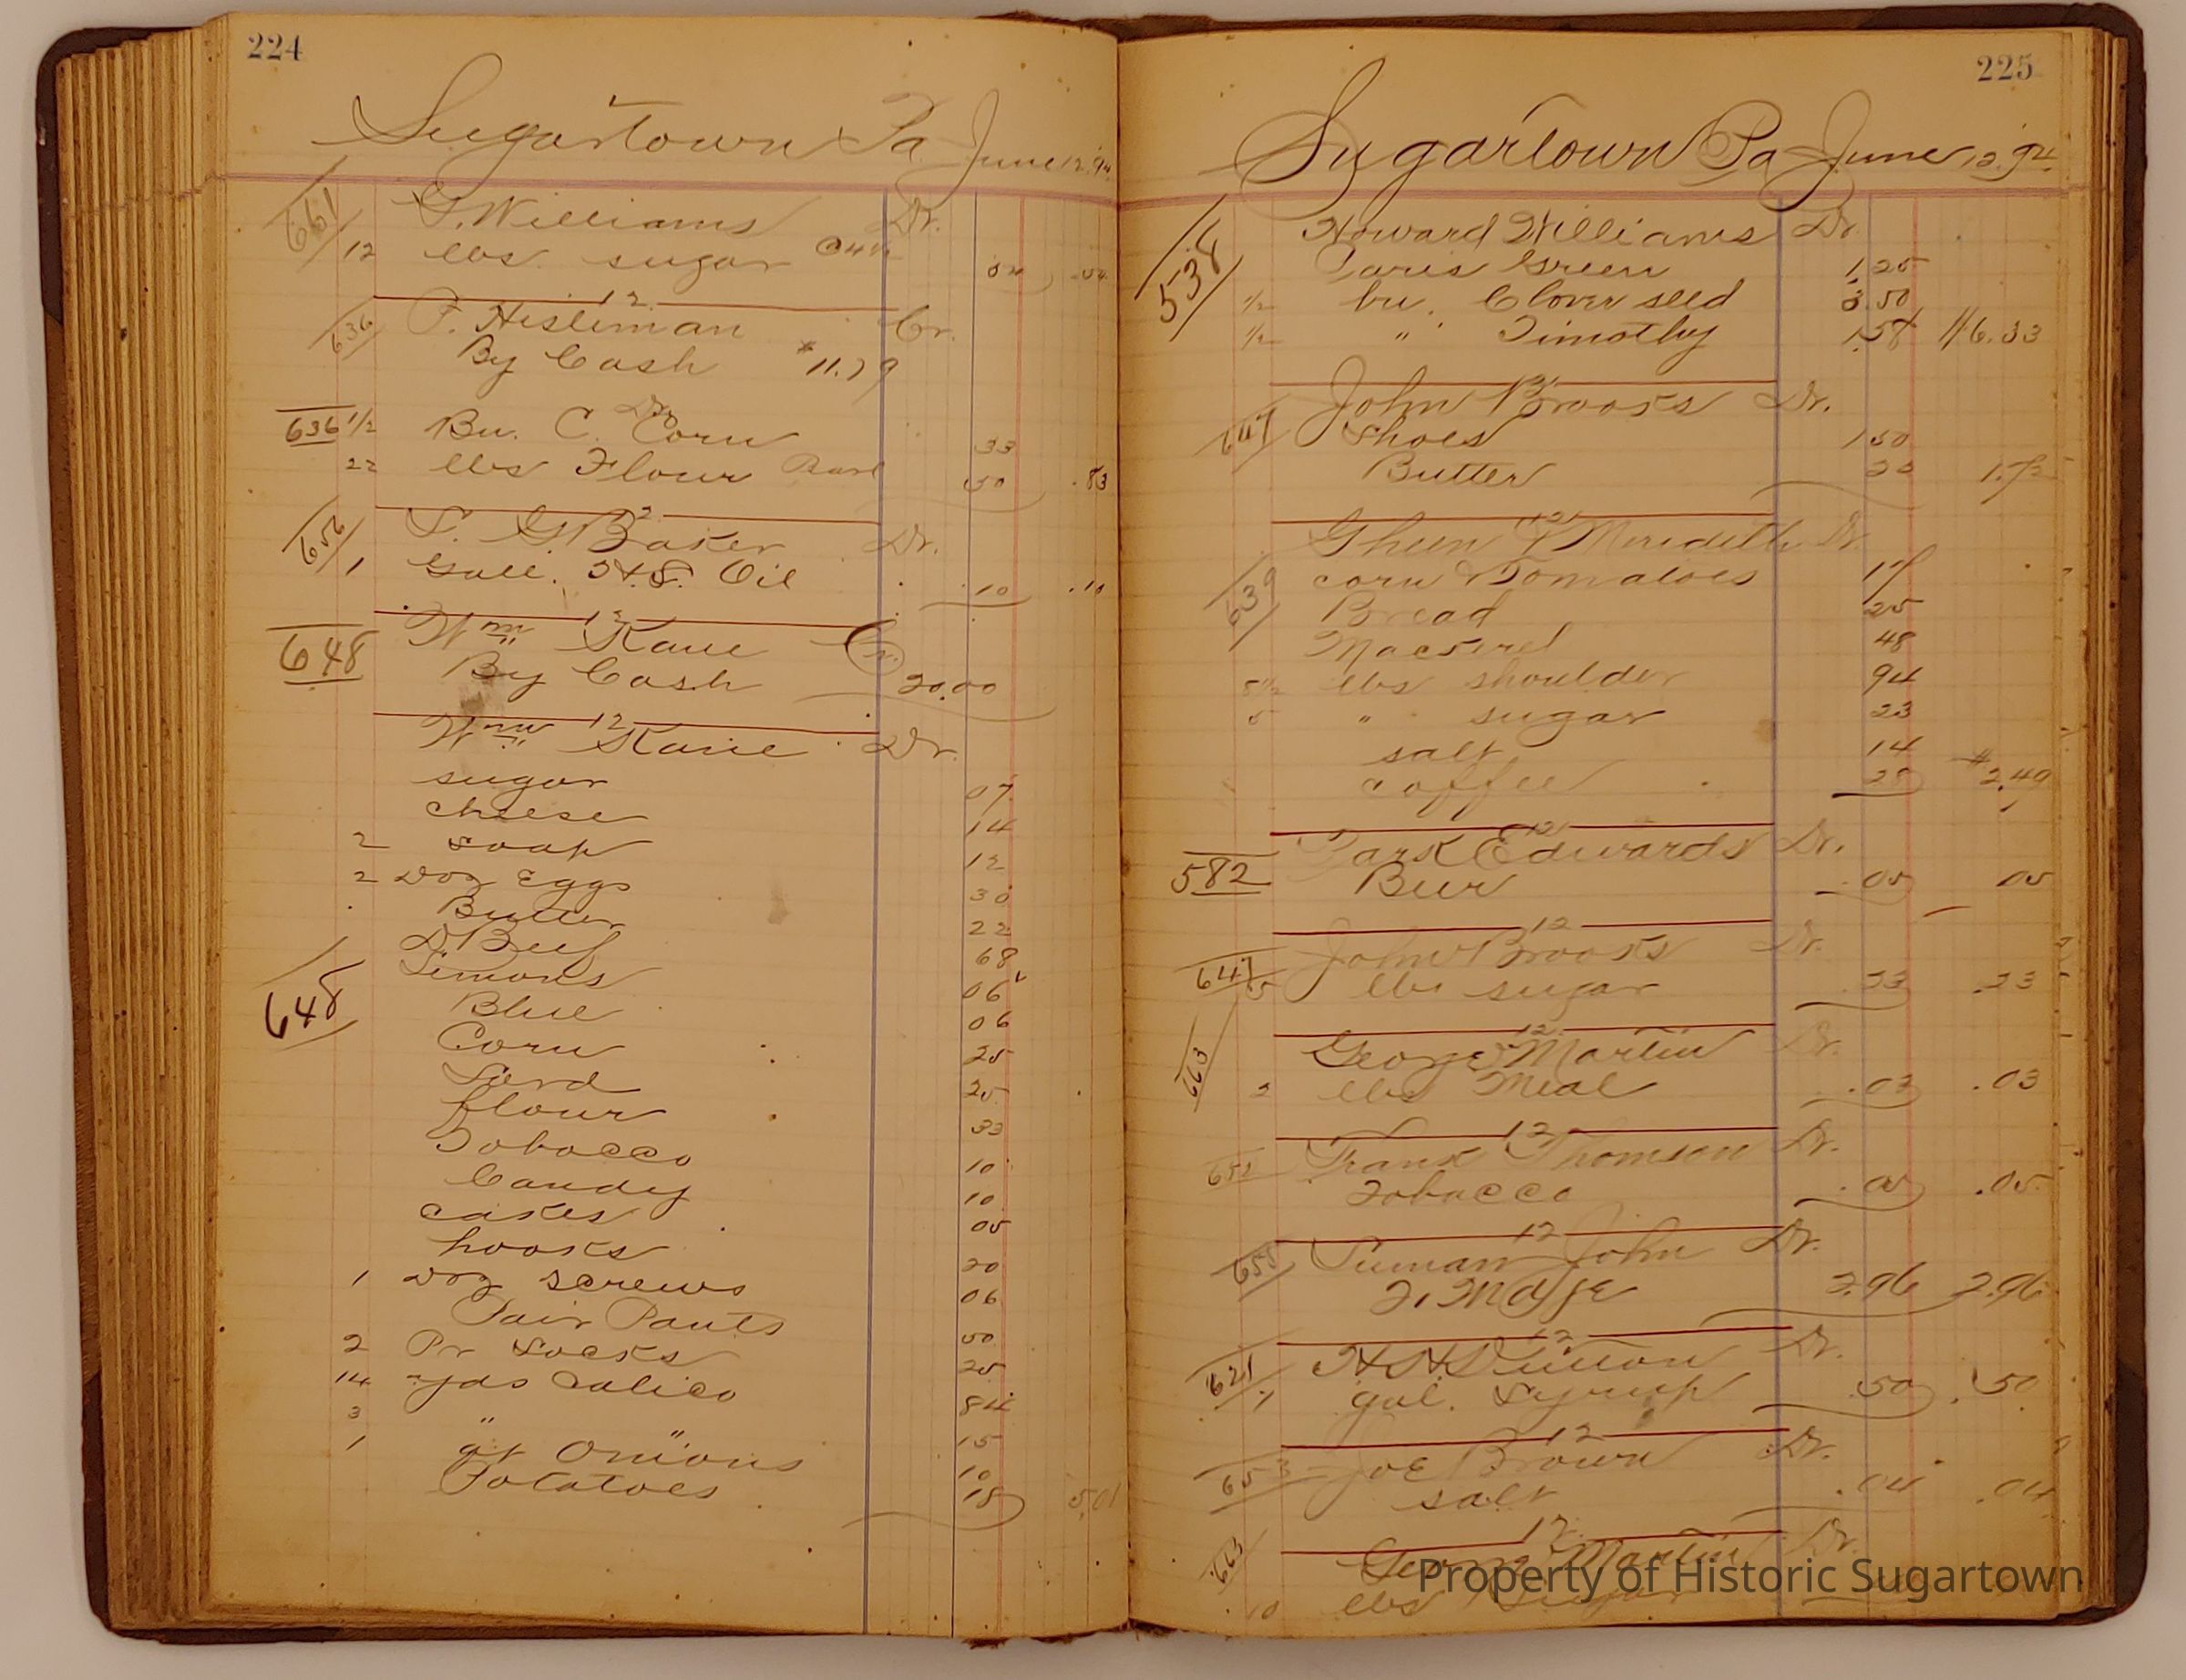 224
Sugartown Pa June 12. 94.
661 G. Williams Dr.
12 lbs sugar @ 4½ 54 .54
12
636 P. Hesleman Cr.
By Cash $11.79
Dr.
636 1/2 Bu. C. Corn 33
22 lbs Flour 50 .83
12
656 S. G. Baker Dr.
1 Gall. H.S. Oil .10 .10
12
648 Wm Kane Cr.
By Cash 20.00
12
Wm Kane Dr.
sugar 07
cheese 14
2 soap 12
2 Doz Eggs 30
Butter 22
D. Beef 68
Limons 06
648 Blue 06
Corn 25
Lard 25
flour 33
Tobacco 10
Candy 10
cakes 05
hooks 20
1 Doz screws 06
Pair Pants 50
2 Pr Socks 25
14 yds Calico 84
3 " " 15
1 qt Onions 10
Potatoes 18 5.01
225
Sugartown Pa June 12. 94.
538 Howard Williams Dr
Paris Green 1.25
1/2 bu. Clover seed 3.50
1/2 " Timothy 1.58 $6.33
12
647 John Brooks Dr.
Shoes 1 50
Butter 22 1.72
12
Gheen & Meredith Dr.
639 corn & Tomatoes 17
Bread 25
Mackerel 48
8 1/2 lbs shoulder 94
5 " sugar 23
salt 14
coffee 28 $2.49
12
582 Park Edwards Dr.
Beer .05 05
12
647 John Brooks Dr.
5 lbs sugar .23 .23
12
663 George Martin Dr.
2 lbs Meal .03 .03
12
652 Frank Thomson Dr.
Tobacco .05 .05
12
655 John Dr.
2.96 2.96
12
621 Dr.
1 gal. Syrup .50 .50
12
653 Joe Brown Dr.
salt .04 .04
12
663 George Martin Dr.
10 lbs Sugar
Property of Historic Sugartown